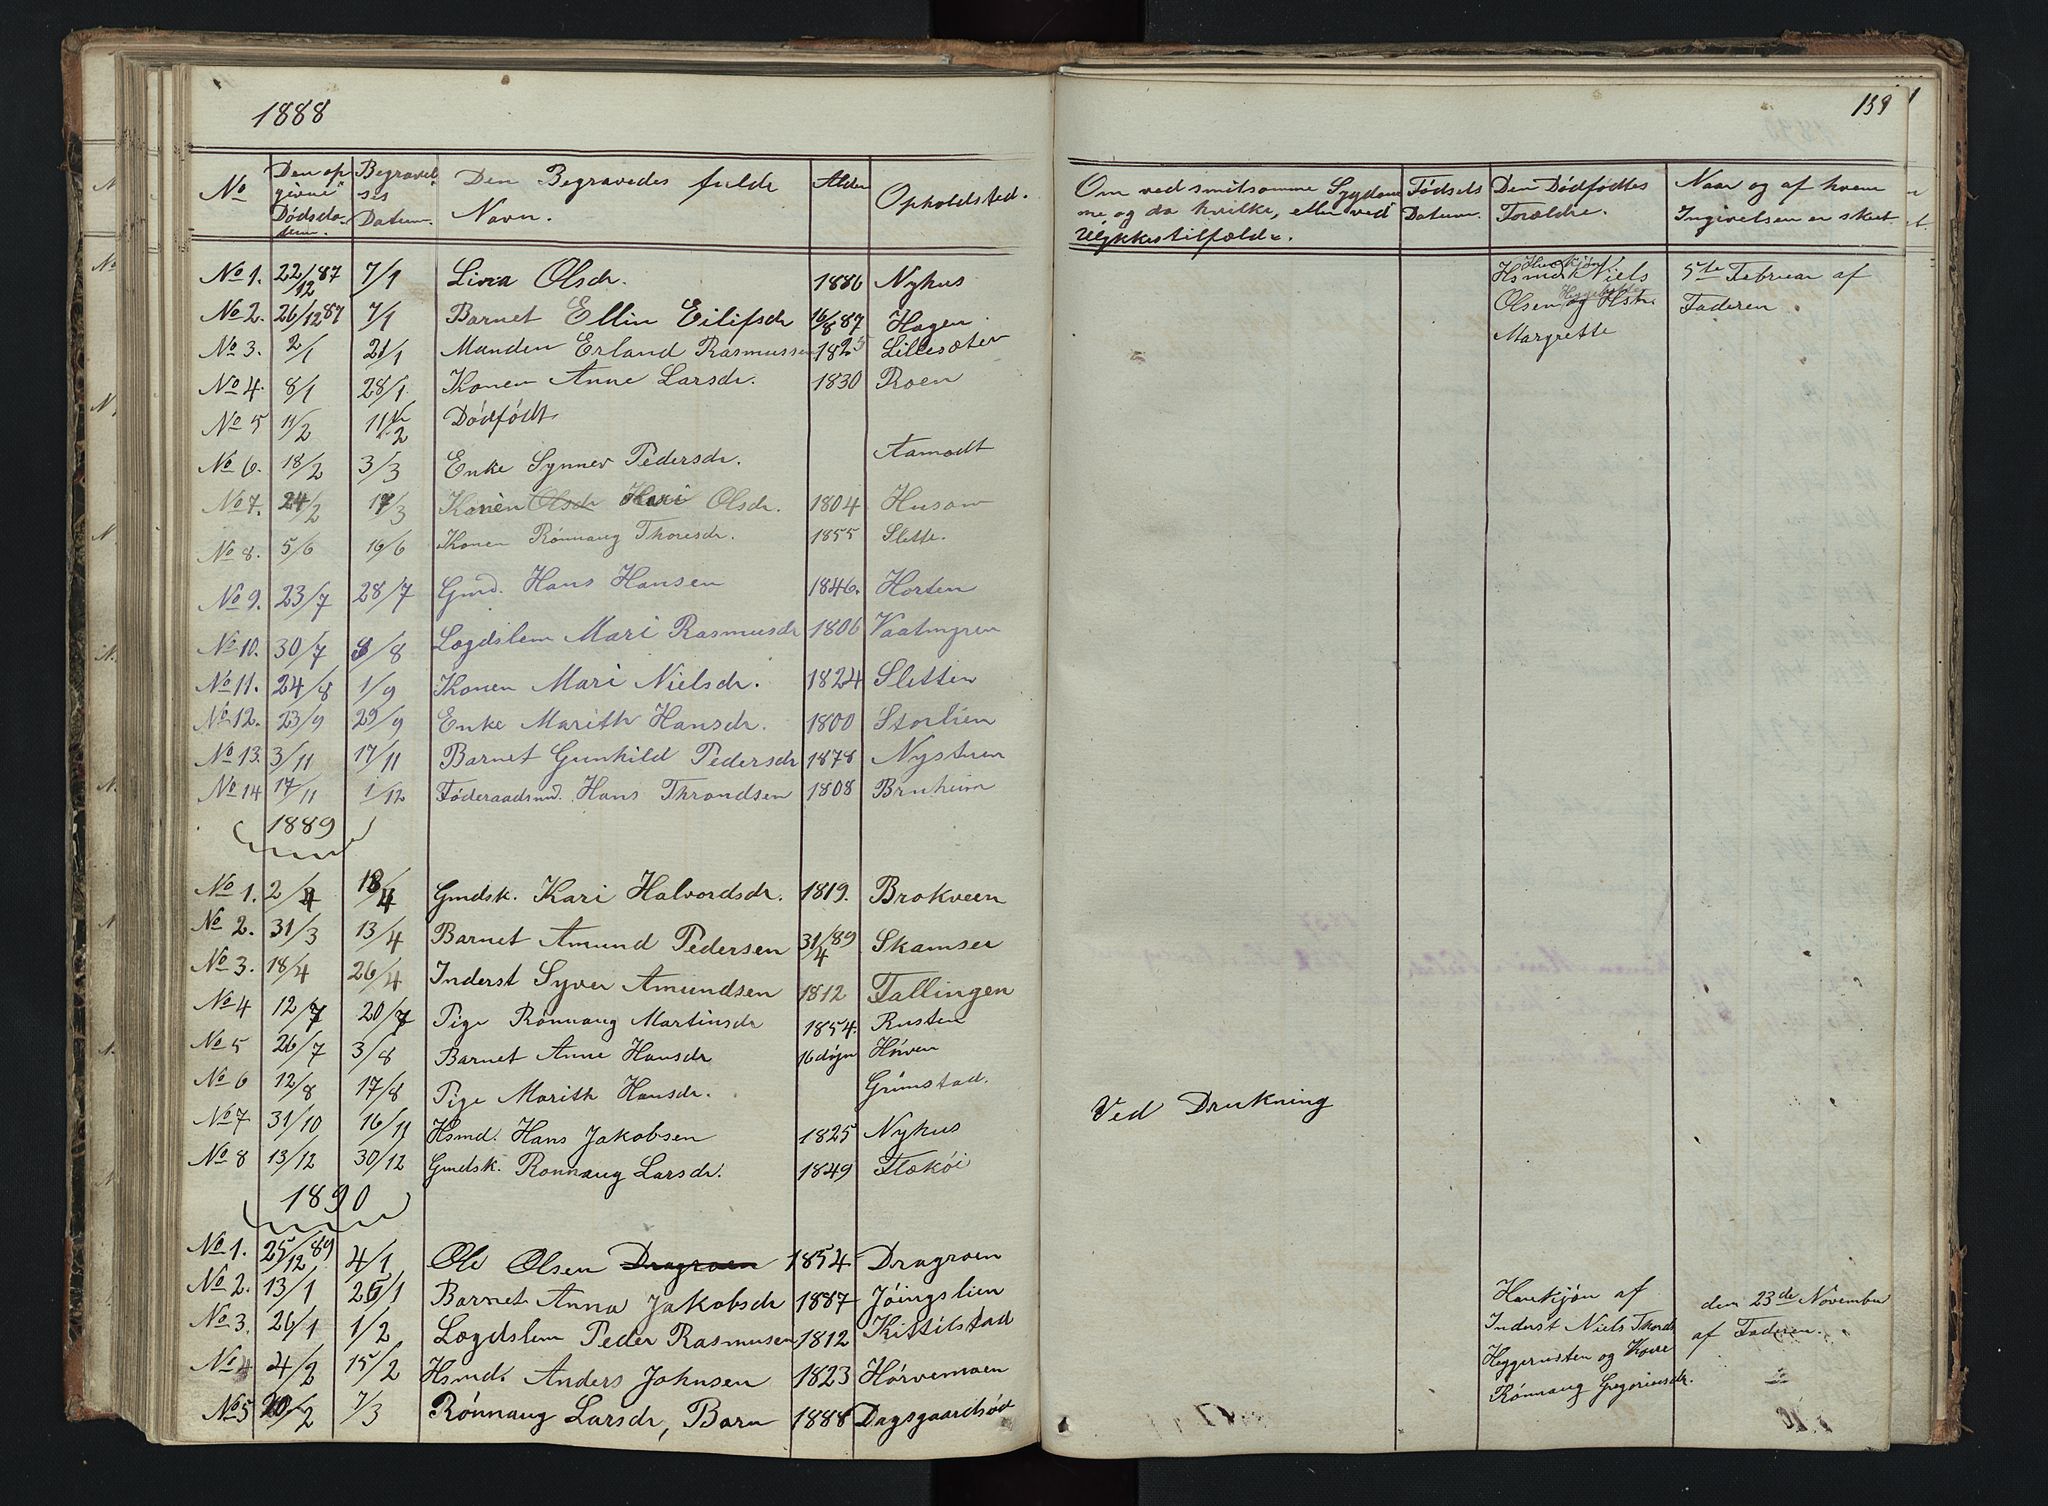 1888
No
Den op
givne
Dødsda-
tum.
Begravel
ses
Datum.
Den Begravedes fulde
Navn.
Alder
Opholdsted.
No 1. 22/12 87 7/1 Livra Olsdr. 1886 Nyhus
No 2. 26/12 87 7/1 Barnet Ellin Eilifsdr 16/8 87 Hagen
No 3. 2/1 21/1 Manden Erland Rasmussen 1825 Lillesæter
No 4. 8/1 28/1 Konen Anne Larsdr. 1830 Roen
No 5 11/2 Dødfødt
No 6. 18/2 3/3 Enke Synnev Pedersdr. Aamodt
No 7. 24/2 17/3 Konen Olsdr Kari Olsdr. 1804 Husom
No 8. 5/6 16/6 Konen Rønnaug Thoresdr. 1855 Slette.
No 9. 23/7 28/7 Gmd. Hans Hansen 1846. Horten
No 10. 30/7 8/8 Lægdslem Mari Rasmusdr 1806 Vaatmyren
No 11. 24/8 1/9 Konen Mari Nielsdr. 1824 Sletten
No 12. 23/9 29/9 Enke Marith Hansdr. 1800 Storlien
No 13. 3/11 17/11 Barnet Gunhild Pedersdr 1878 Nystuen
No 14 17/11 1/12 Føderaadsmd. Hans Throndsen 1808 Bruheim
1889
No 1. 2/4 18/4 Gmdsk. Kari Halvordsdr. 1819. Brokveen
No 2. 31/3 13/4 Barnet Amund Pedersen 31/4 89 Skamser
No 3. 18/4 26/4 Inderst Syver Amundsen 1812 Fallingen
No 4 12/7 20/7 Pige Rønnaug Martinsdr 1854. Rusten
No 5 26/7 3/8 Barnet Anne Hansdr 16 døgn Høven
No 6 12/8 17/8 Pige Marith Hansdr. Grimstad.
No 7 31/10 16/11 Hsmd. Hans Jakobsen 1825 Nyhus
No 8 13/12 30/12 Gmdsk. Rønnaug Larsdr. 1849 Flækøi
1890
No 1. 25/12 89 4/1 Ole Olsen Dragroen 1854. Dragroen
No 2. 13/1 26/1 Barnet Anna Jakobsdr 1887 Jøingslien
No 3. 26/1 1/2 Lægdslem Peder Rasmusen 1812 Kittilstad
No 4 4/2 15/2 Hsmd. Anders Johnsen 1823 Hørvemoen
No 5 20/2 7/3 Rønnaug Larsdr, Barn 1888 Dagsgaardsød
159
Om ved smitsomme Sygdom
me og da hvilke, eller ved
Ulykkestilfælde.
Fødsels
Datum.
Den Dødfødtes
Forældre.
Naar og af hvem
Ingivelsen er skeet
Hunkjøn
Hsmd. Niels
Olsen og Hstr.
Margrette
5te Februar af
Faderen
Ved Drukning
Hankjøn af
Inderst Niels Thords
Heggerusten og Kone
Rønnaug Gregoriusdr.
den 23de November
af Faderen.